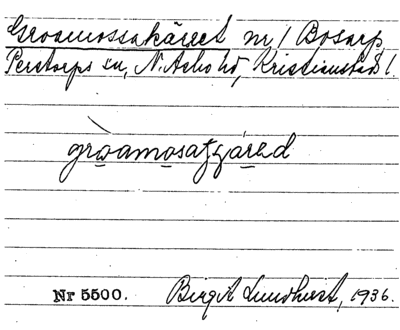 Groamossakäret nr 1 Bosarp
Perstorps sn, N. Åsbo hd, Kristianstads l.
gròamosatjäred
Nr 5500. Birgit Lundkvist, 1936.